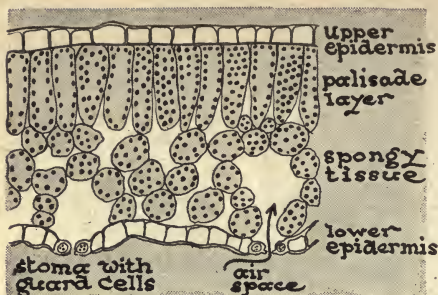 upper
epidermis
palisade
layer
spongy
tissue
lower
epidermis
stoma with
guard cells
air
space